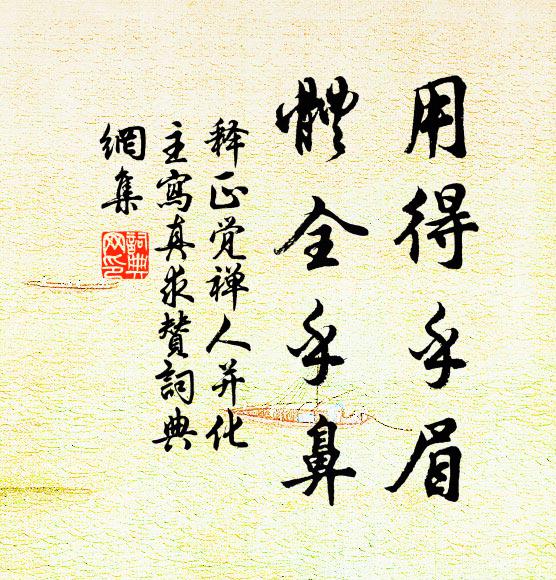 用得乎眉
體全乎鼻
释正觉禅人并化
主寫真求贊詞典
網集
詞典網印